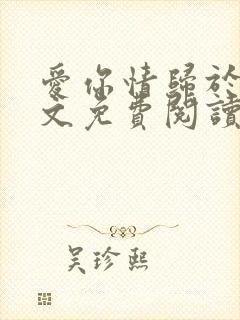 愛你情歸於
文免費閱讀
吴珍熙